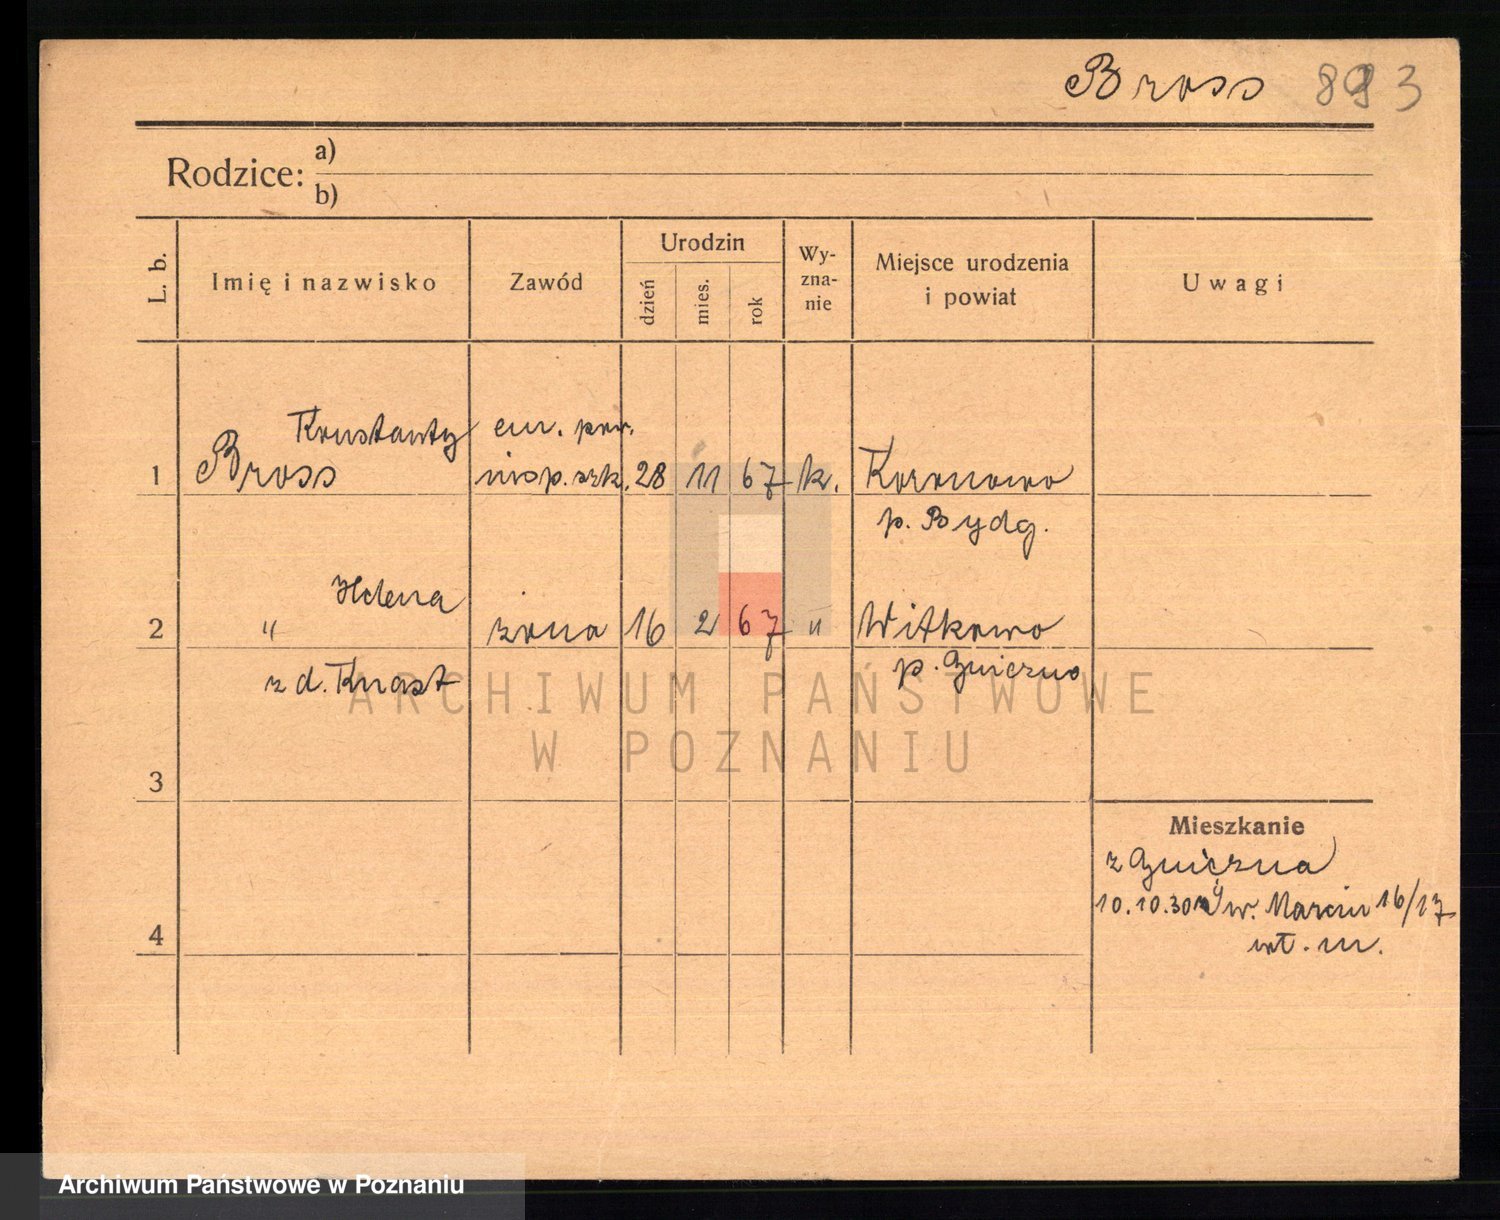 Bross 893
Rodzice:
a)
b)
L. b.
Imię i nazwisko
Zawód
Urodzin
dzień
mies.
rok
Wy-
zna-
nie
Miejsce urodzenia
i powiat
Uwagi
Konstanty em. pow.
1 Bross insp. szk. 28 11 67 k. Koronowo
p. Bydg.
Helena
2 " żona 16 2 67 " Witkowo
z d. Knast p. Gniezno
ARCHIWUM PAŃSTWOWE
W POZNANIU
3
Mieszkanie
z Gniezna
10.10.30 Św. Marcin 16/17
4
wł. m.
Archiwum Państwowe w Poznaniu